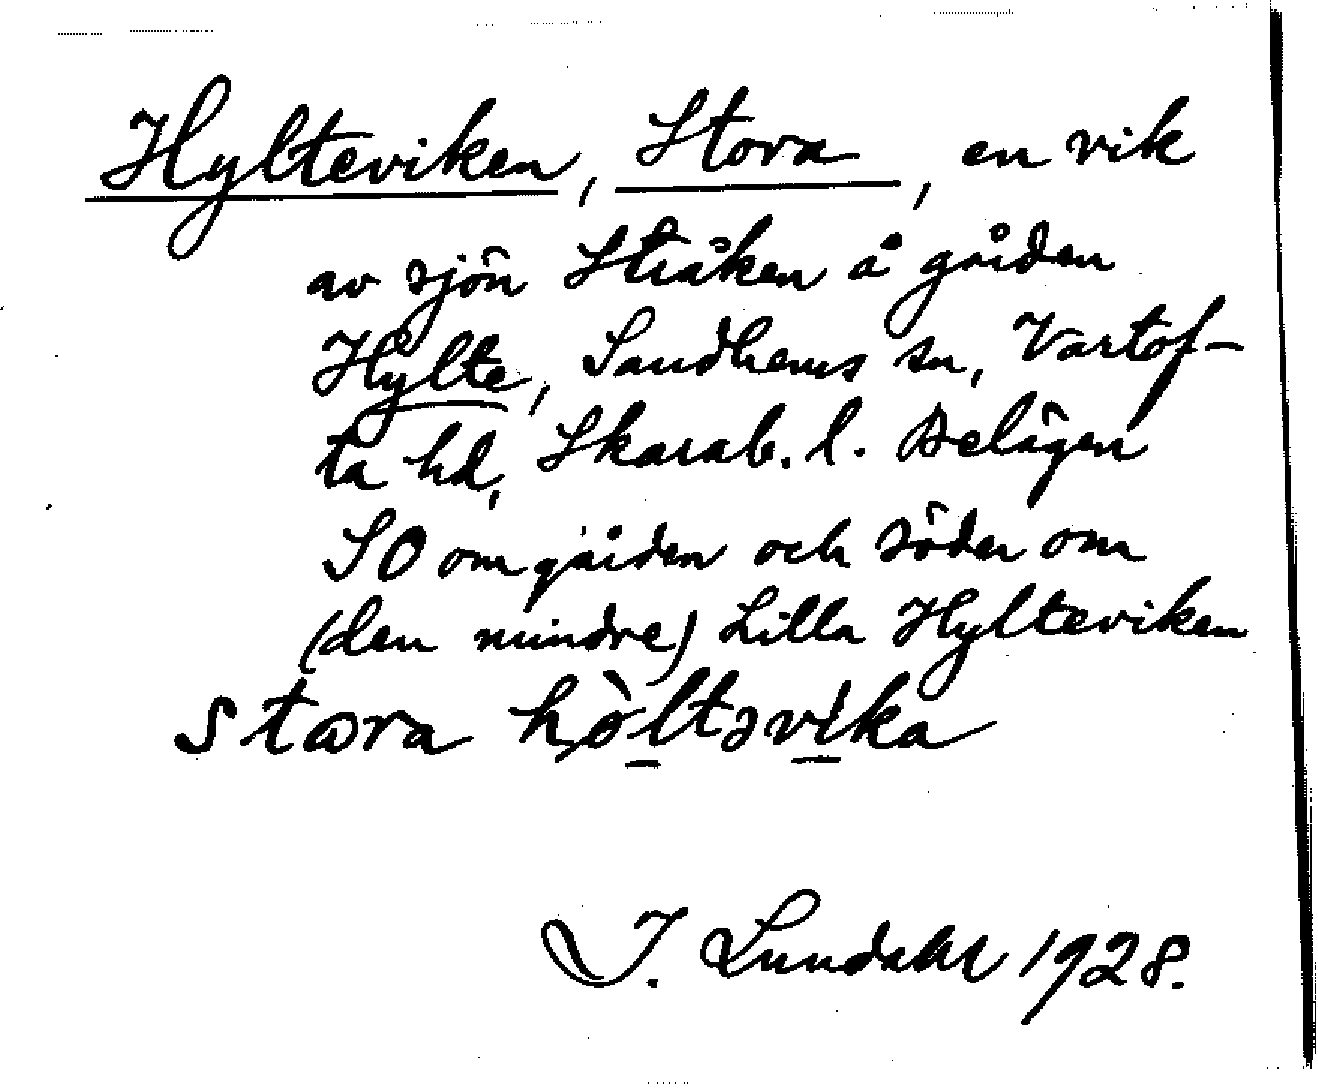 Hylteviken, Stora, en vik
av sjön Stråken å gården
Hylte, Sandhems sn, Vartof-
ta hd, Skarab. l. Belägen
SO om gården och söder om
(den mindre) Lilla Hylteviken
stɷra hò̱ltəvi̱ka
I. Lundahl 1928.